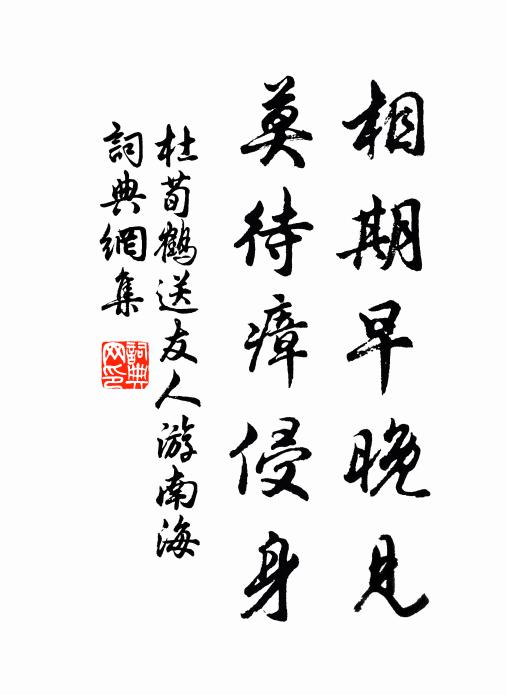 相期早晚見
莫待瘴侵身
杜荀鶴送友人游南海
詞典網集
詞典網印